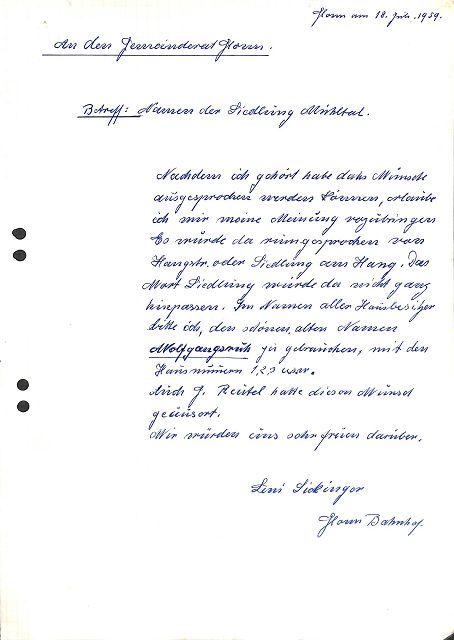 Glonn am 18. Juli. 1959.
An den Gemeinderat Glonn.
Betreff: Namen der Siedlung Mühltal.
Nachdem ich gehört habe dahs Wünsche
ausgesprochen werden können, erlaube
ich mir meine Meinung vozubringen
Es wurde da rumgesprochen von
Hangstr. oder Siedlung am Hang. Das
Wort Siedlung würde da nicht ganz
hinpassen. Im Namen aller Hausbesitzer
bitte ich, den schönen, alten Namen
Wolfgangsruh zu gebrauchen, mit den
Hausnumern 1,2,3 usw.
Auch J. Beutel hatte diesen Wunsch
geäusert.
Wir würden uns sehr freuen darüber.
Leni Sickinger
Glonn Bahnhof.